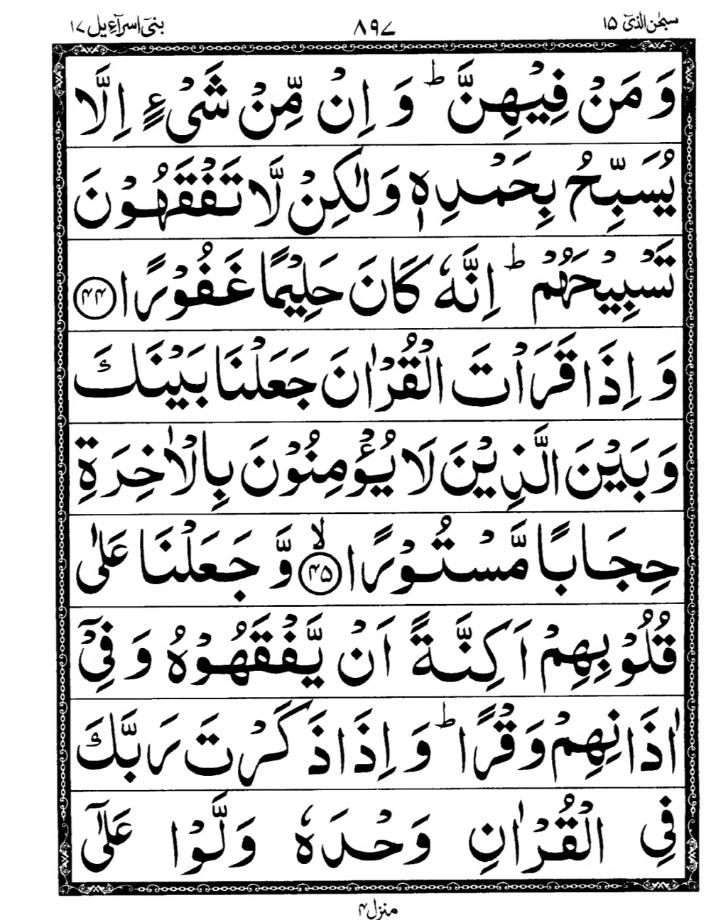 سبحٰن الذیٓ ۱۵ ۸۹۷ بنیٓ اسرآءیل ۱۷
وَ مَنْ فِیْهِنَّ ؕ وَ اِنْ مِّنْ شَیْءٍ اِلَّا
یُسَبِّحُ بِحَمْدِهٖ وَ لٰكِنْ لَّا تَفْقَهُوْنَ
تَسْبِیْحَهُمْ ؕ اِنَّهٗ كَانَ حَلِیْمًا غَفُوْرًا ﴿۴۴﴾
وَ اِذَا قَرَاْتَ الْقُرْاٰنَ جَعَلْنَا بَیْنَكَ
وَ بَیْنَ الَّذِیْنَ لَا یُؤْمِنُوْنَ بِالْاٰخِرَةِ
حِجَابًا مَّسْتُوْرًا ﴿ۙ۴۵﴾ وَّ جَعَلْنَا عَلٰی
قُلُوْبِهِمْ اَكِنَّةً اَنْ یَّفْقَهُوْهُ وَ فِیْۤ
اٰذَانِهِمْ وَقْرًا ؕ وَ اِذَا ذَكَرْتَ رَبَّكَ
فِی الْقُرْاٰنِ وَحْدَهٗ وَلَّوْا عَلٰۤی
منزل ۴